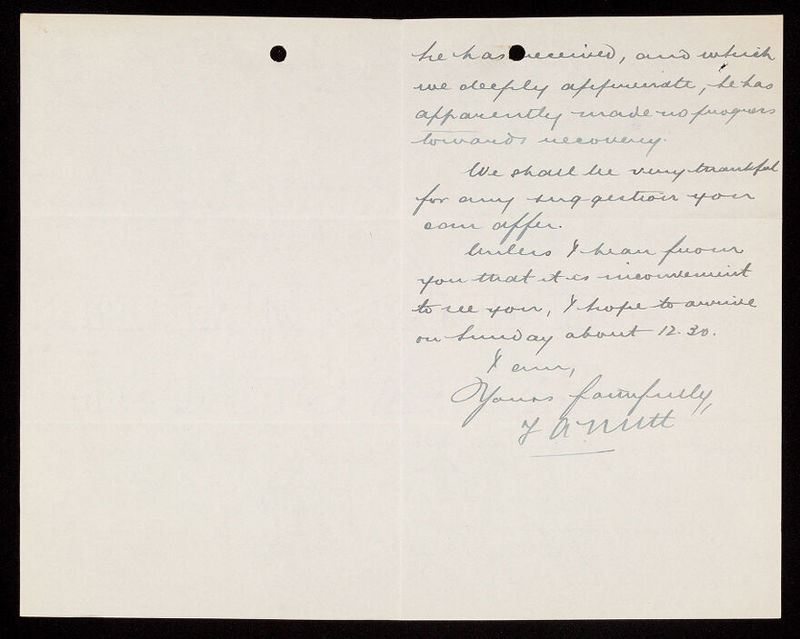 he has received, and which
we deeply appreciate, he has
apparently made no progress
towards recovery.
We shall be very thankful
for any suggestion you
can offer.
Unless I hear from
you that it is inconvenient
to see you, I hope to arrive
on Sunday about 12.30.
I am,
Yours faithfully,
A Nutt